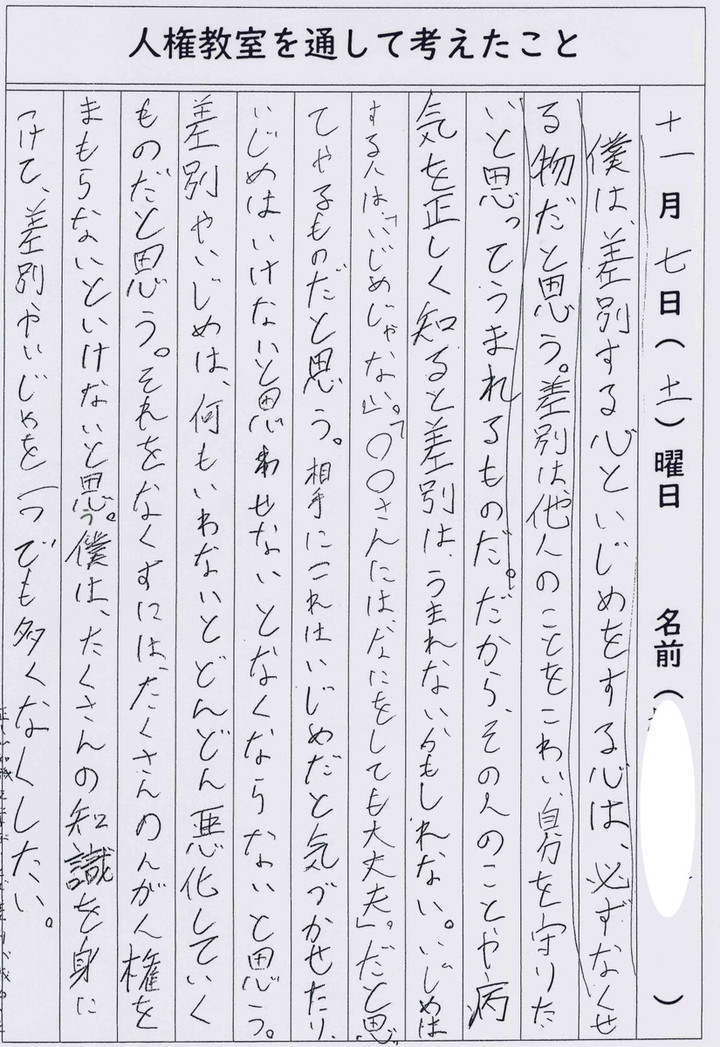 人権教室を通して考えたこと
十一月七日(土)曜日 名前( )
僕は、差別する心といじめをする心は、必ずなくせ
る物だと思う。差別は、他人のことをこわい、自分を守りた
いと思ってうまれるものだ。だから、その人のことや、病
気を正しく知ると差別は、うまれないかもしれない。いじめは
する人は、「いじめじゃない」。「〇〇さんには、なにをしても大丈夫」。だと思っ
てやるものだと思う。相手にこれはいじめだと気づかせたり、
いじめはいけないと思わせないとなくならないと思う。
差別やいじめは、何もいわないとどんどん悪化していく
ものだと思う。それをなくすには、たくさんのんがん権を
まもらないといけないと思う。僕は、たくさんの知識を身に
つけて、差別やいじめを一つでも多くなくしたい。